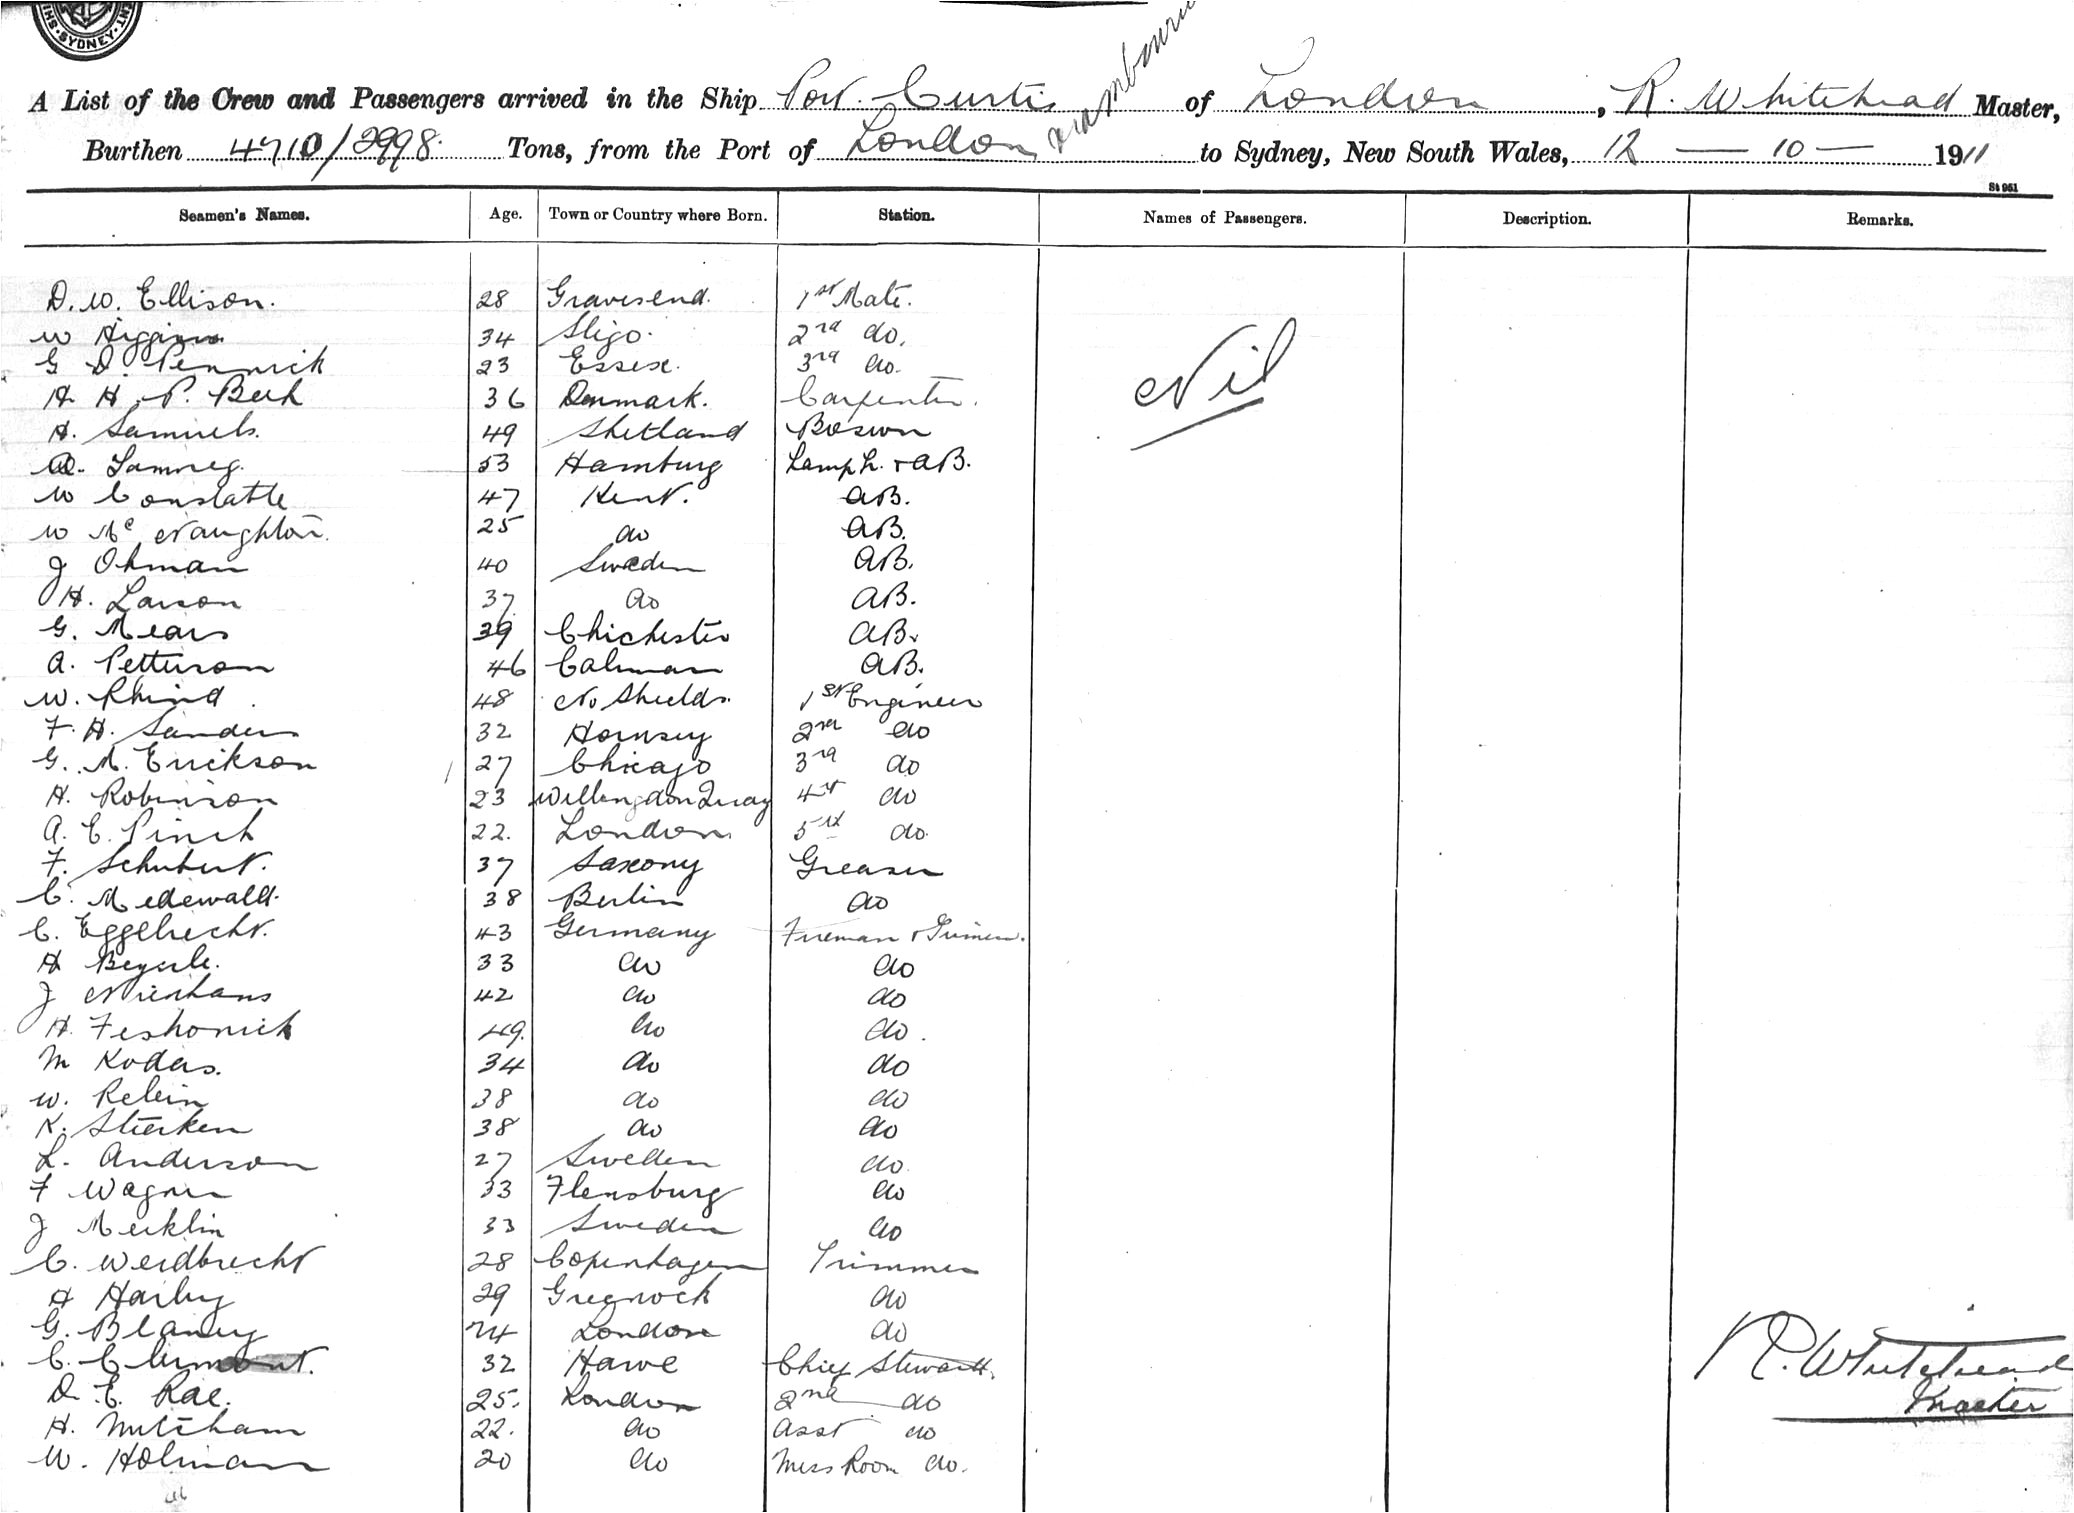 SYDNEY
A List of the Crew and Passengers arrived in the Ship Port Curtis of London, R. Whitehead Master,
Burthen 4710/2998 Tons, from the Port of London to Sydney, New South Wales, 12 — 10 — 1911
St 951
Seamen's Names. Age. Town or Country where Born. Station. Names of Passengers. Description. Remarks.
D. W. Ellison. 28 Gravesend. 1st Mate.
W Higgins 34 Sligo. 2nd do.
G D. Pennick 23 Essex. 3rd do.
Nil
H. H. P. Beck 36 Denmark. Carpenter.
H. Samuels. 49 Shetland Boswn
53 Hamburg Lamp h. + AB.
W Constable 47 Kent. AB.
W McNaughton. 25 do AB.
J Ohman 40 Sweden AB.
H. Larson 37 do AB.
G. Mears 39 Chichester AB.
A. Petterson 46 Calmar AB.
W. Rhind 48 No Shields. 1st Engineer
F. H. Sanders 32 Hornsey 2nd do
G. M. Erickson 27 Chicago 3rd do
H. Robinson 23 Willingdon Quay 4th do
A. E. Pinch 22. London 5th do.
F. Schubert. 37 Saxony Greaser
C. Medewald. 38 Berlin do
C. Eggebrecht. 43 Germany Fireman & Trimmer.
H Beyerle. 33 do do
J Nienhaus 42 do do
H. 49. do do.
M Kodas. 34 do do
W. Rebein 38 do do
K. Stierken 38 do do
L. Anderson 27 Sweden do
F Wagner 33 Flensburg do
J Merklin 33 Sweden do
C. Weidbrecht 28 Copenhagen Trimmer
H Harley 29 Greenock do
G. Blaney 24 London do
C. Clermont. 32 Havre Chief Steward.
R. Whitehead
D. E. Rae. 25. London 2nd do
Master
H. Mitcham 22. do Asst do
W. Holman 20 do Mess Room do.
36